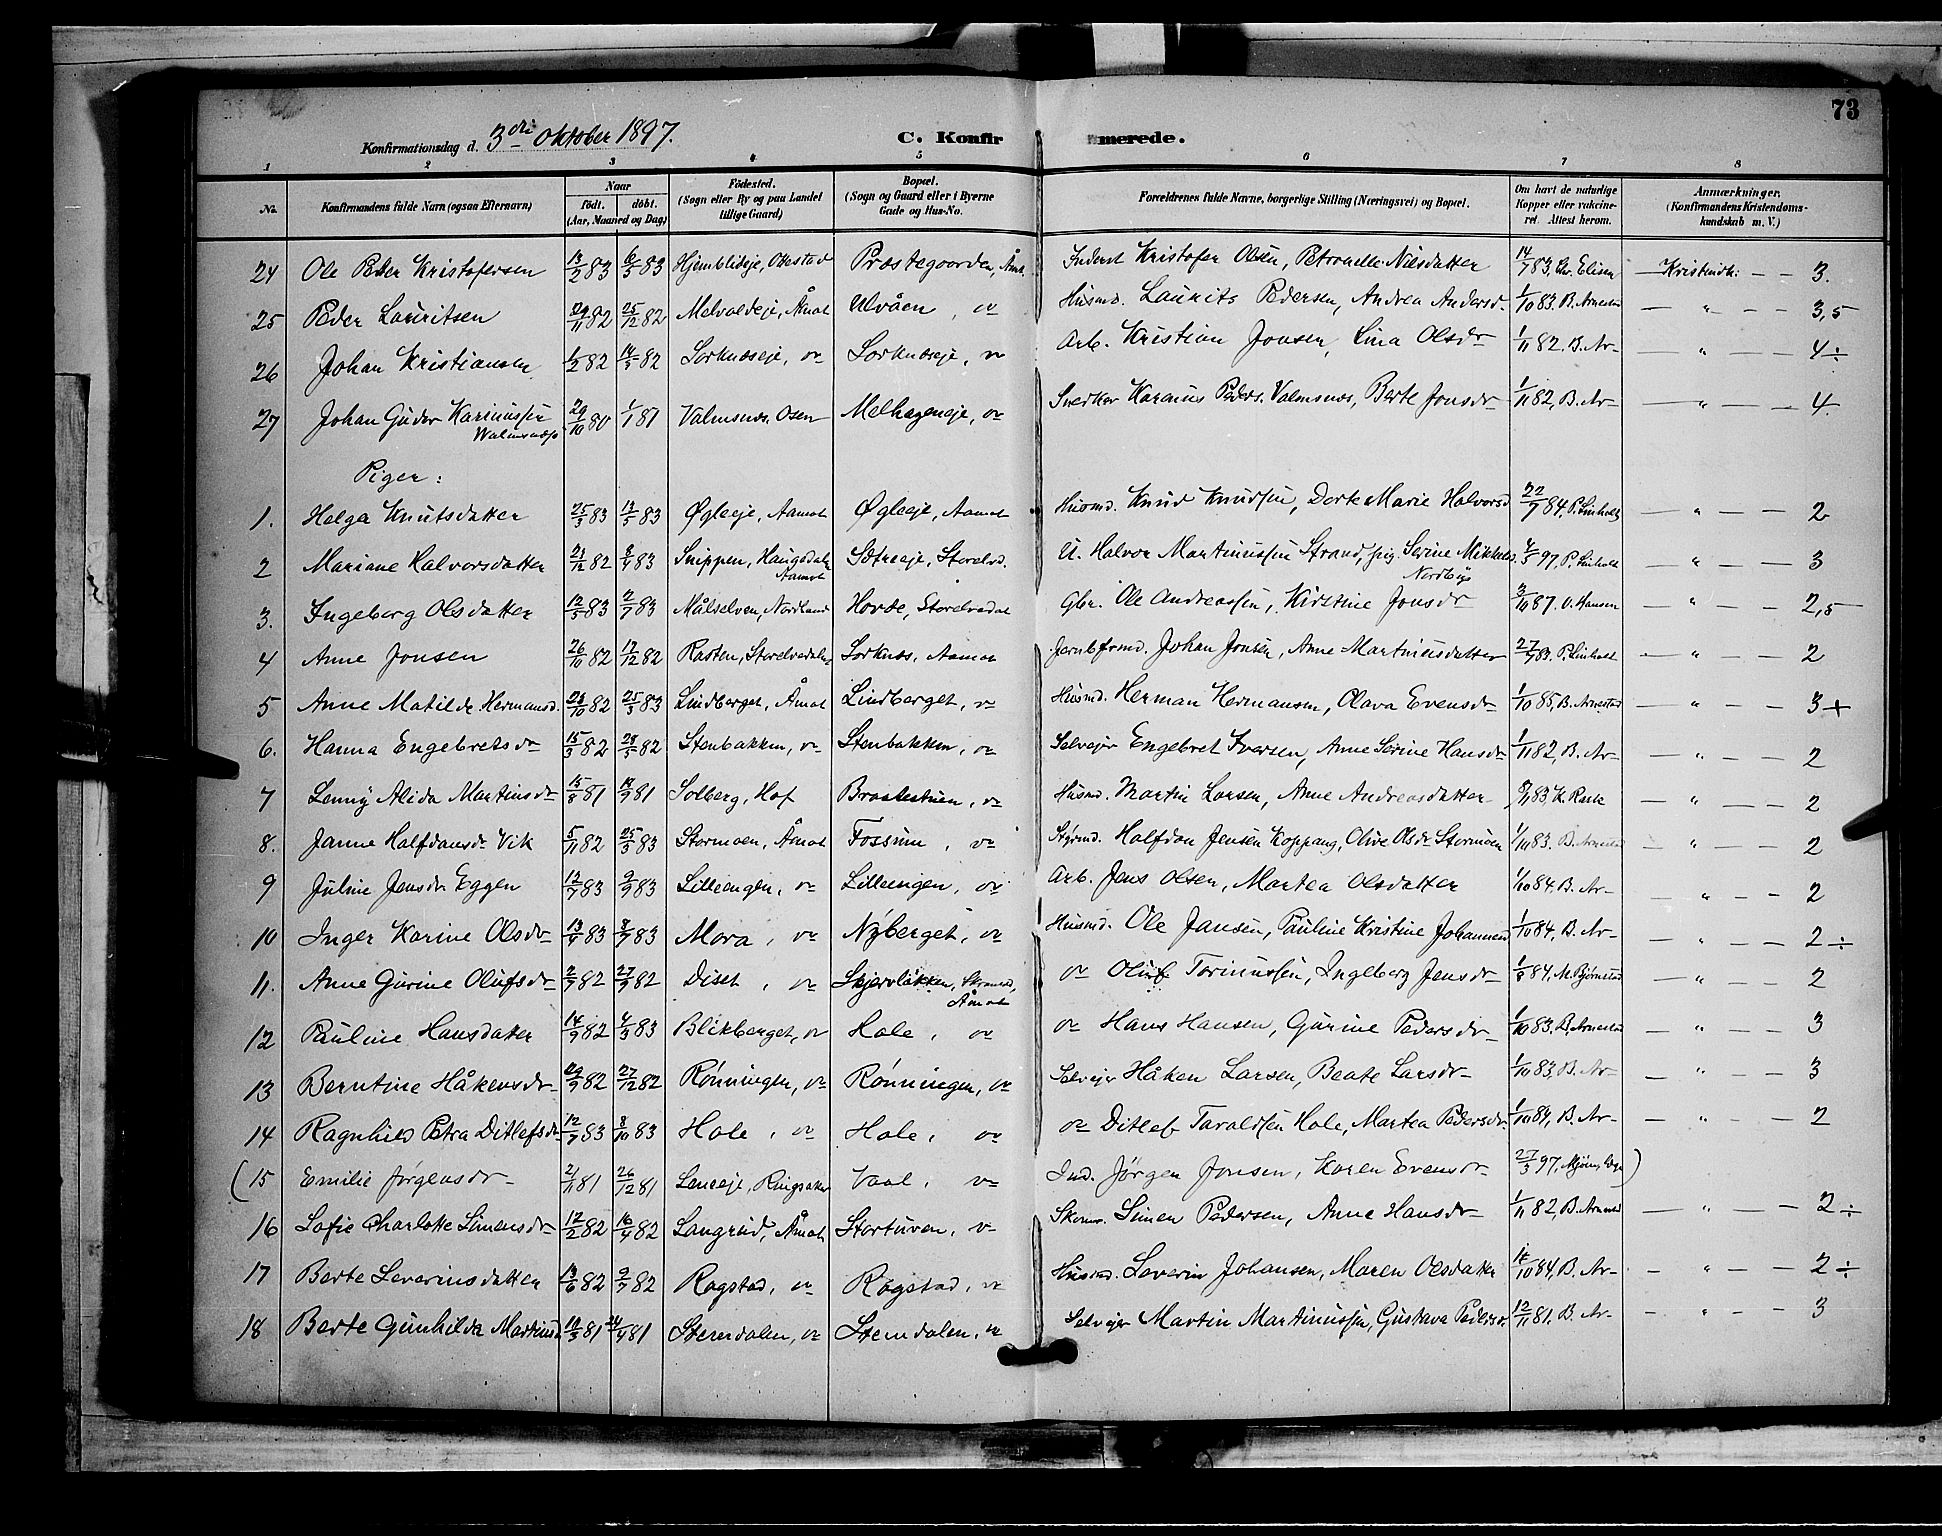 73
Konfirmationsdag d. 3die Oktober 1897. C. Konfirmerede.
1 2 3 4 5 6 7 8
No. Konfirmandens fulde Navn (ogsaa Efternavn) Naar födt. döbt. (Aar, Maaned og Dag) Födested. (Sogn eller By og paa Landet tillige Gaard) Bopæl. (Sogn og Gaard eller i Byerne Gade og Hus-No. Forældrenes fulde Navne, borgerlige Stilling (Næringsvei) og Bopæl. Om havt de naturlige Kopper eller vakcineret. Attest herom. Anmærkninger. (Konfirmandens Kristendomskundskab m. V.)
24 Ole Peder Kristofersen 83 83 Præstegaarden, Åmot Inderst Kristofer Olsen, Petronelle Nilsdatter 14/7 83, Kristendk: — — 3.
25 Peder Lauritsen 29/11 82 25/12 82 Åmot Ulvåen, do Husmd. Laurits Pedersen, Andrea Andersd. 1/10 83. B. Arnestad — " — — 3,5
26 Johan Kristiansen 82 82 Sorknæseje, do Sorknæseje, do Arb. Kristian Jonsen, Lina Olsdr 1/11 82. B. Ar- — " — — 4÷
27 Johan Gudor Karinussen Walmsnæss 29/10 80 1/1 81 Valmsnes, Osen Melhageneje, do Snedker Karinus Peders. Valmsnes, Berte Jonsdr 1/11 82, B. Ar- — " — 4.
Piger:
1. Helga Knutsdatter 25/3 83 13/5 83 Øgleeje, Aamot Øgleeje, Aamot Husmd. Knud Knudsen, Dorte Marie Halvorsd 22/7 84, P. Linholt — " — — 2
2 Mariane Halvorsdatter 82 83 Snippen, Haugedalen Aamot Sætreeje, Storelvd. U. Halvor Martinussen Strand, pig Serine Mikkels. Nordby 97, P. Linholt — " — — 3
3. Ingeborg Olsdatter 12/5 83 2/7 83 Målselven, Nordland Horde, Storelvedal Gbr. Ole Andreassen, Kirstine Jonsdr 3/10 87. O. Hansen — " — — 2,5
4 Anne Jonsen 26/10 82 17/12 82 Rasten, Storelvedalen Sorknes, Aamot Johan Jonsen, Anne Martinusdatter 27/7 83. P. Linholt — " — 2
5 Anne Matilde Hermansd. 82 25/3 83 Lindberget, Åmot Lindberget, do Husmd. Herman Hermansen, Olava Evensdr 1/10 85, B. Arnestad — " — — 3+
6. Hanna Engebretsdr 15/3 82 28/5 82 Stenbakken, do Stenbakken, do Selvejer Engebret Iversen, Anne Serine Hansdr 1/11 82, B. Ar- — " — — 2
7 Lenny Alida Martinsdr 81 81 Solberg, Hof Braatestuen, do Husmd. Martin Larsen, Anne Andreasdatter 83, K. Rask — " — — 2
8. Janne Halfdansdr Vik 5/11 82 25/3 83 Stormoen, Åmot Fossum, do Styrmd. Halfdan Jensen Koppang, Olive Olsdr Stormoen 1/10 83. B. Arnestad — " — — 2
9 Juline Jensdr Eggen 12/7 83 2/9 83 Lilleengen, do Lilleengen, do Arb. Jens Olsen, Martea Olsdatter 1/10 84, B. Ar- — " — — 2
10 Inger Karine Olsdr 13/4 83 8/7 83 Mora, do Nyberget, do Husmd. Ole Jansen, Pauline Kristine Johannesd 1/10 84, B. Ar- — " — — 2÷
11. Anne Gurine Olufsdr 82 27/9 82 Diset, do Skjervløkken, Åmot do Oluf Torinussen, Ingeborg Jensdr 84, M. Bjørnstad — " — — 2
12 Pauline Hansdatter 14/9 82 4/3 83 Blikberget, do Hole, do do Hans Hansen, Gurine Pedersdr 1/10 83. B. Arnestad — " — — 3
13 Berntine Håkensdr 29/9 82 27/12 82 Rønningen, do Rønningen, do Selvejer Håken Larsen, Beate Larsdr 1/10 83, B. Ar- — " — — 3
14 Ragnhild Petra Ditlefsdr 12/7 83 8/10 83 Hole, do Hole, do do Ditlef Taraldsen Hole, Martea Pedersdr. 1/10 84, B. Ar- — " — — 2
(15 Emilie Jørgensdr 21/11 81 26/12 81 Ringsaker Vaal, do Ind. Jørgen Jonsen, Karen Evensdr 27/3 97, )
16 Sofie Charlotte Simensdr 12/2 82 16/4 82 Langrud, Åmot Stortuven, do Skom. Simen Pedersen, Anne Hansdr 1/11 82, B. Arnestad — " — — 2÷
17 Berte Severinsdatter 82 9/7 82 Rogstad, do Rogstad, do Husmd. Severin Johansen, Maren Olsdatter 84, B. Ar- — " — — 2÷
18 Berte Gunhilde Martinsd. 81 81 Stenerdalen, do Stemdalen, do Selvejer Martin Martinussen, Gustava Pedersdr. 12/11 81, B. Ar- — " — — 3